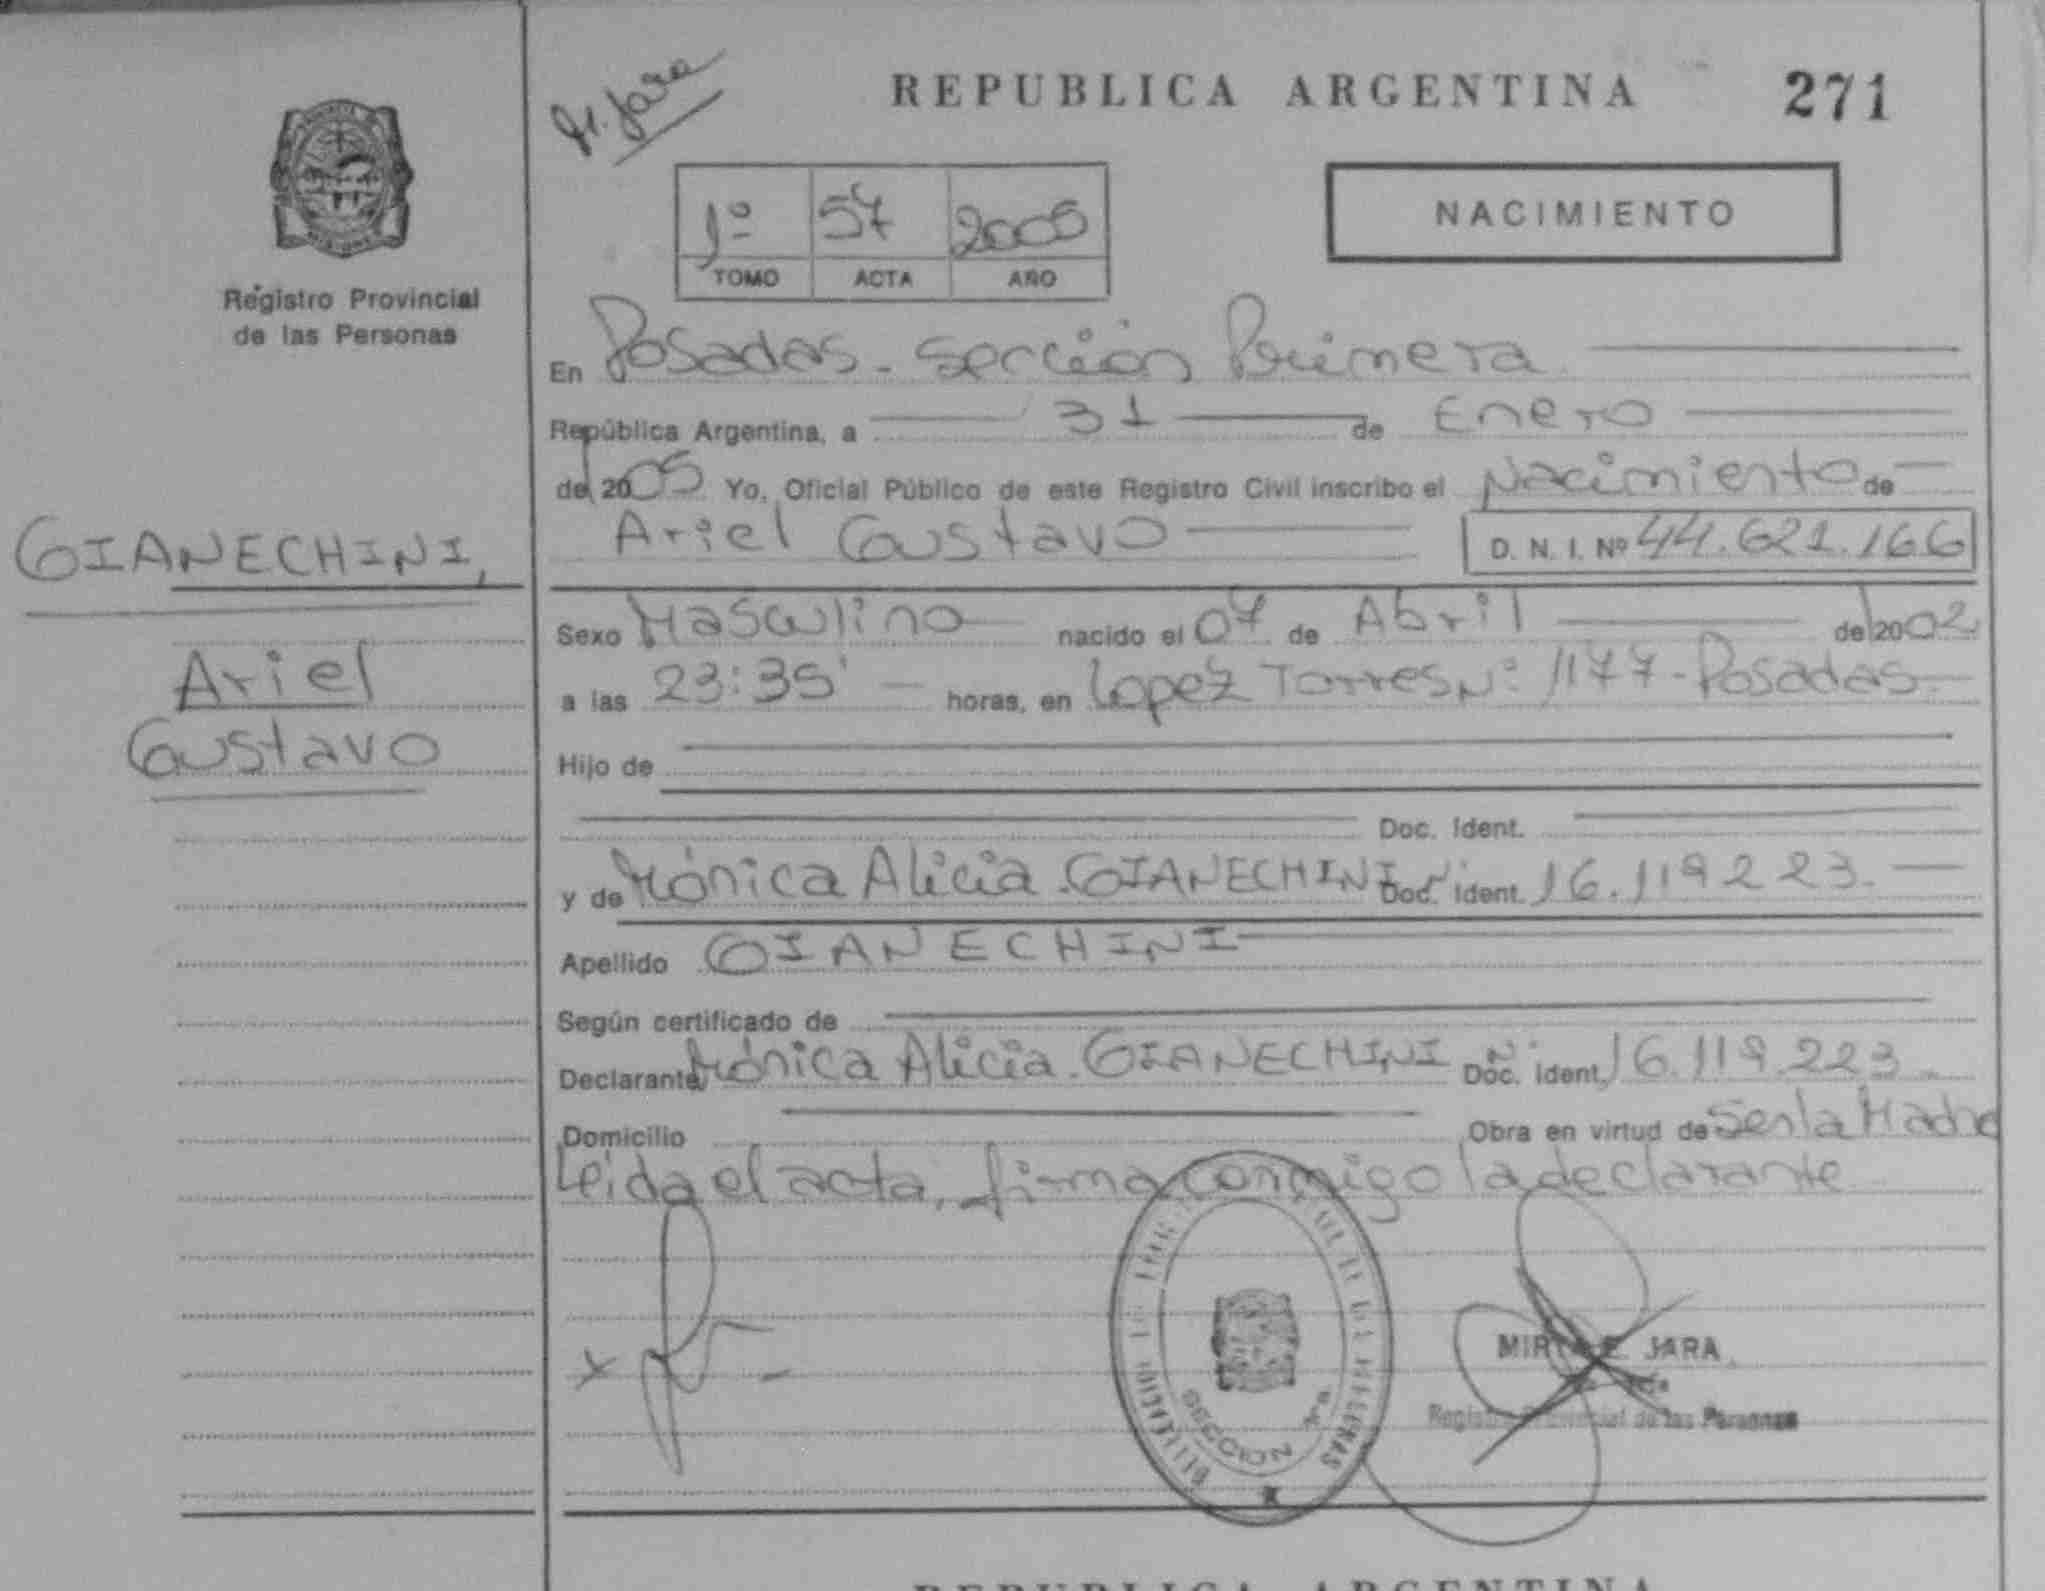 M. Jara
REPUBLICA ARGENTINA 271
1º 57 2005
TOMO ACTA AÑO
NACIMIENTO
Registro Provincial
de las Personas
En Posadas - Sección Primera
República Argentina, a 31 de Enero
de 2005 Yo, Oficial Público de este Registro Civil inscribo el Nacimiento de
Ariel Gustavo D. N. I. Nº 44.621.166
GIANECHINI,
Ariel
Gustavo
Sexo Masculino nacido el 07 de Abril de 2002
a las 23:35' horas, en Lopez Torres Nº 1177 - Posadas
Hijo de
Doc. Ident.
y de Mónica Alicia GIANECHINI Doc. Ident. Nº 16.119.223.
Apellido GIANECHINI
Según certificado de
Declarante Mónica Alicia GIANECHINI Doc. Ident. Nº 16.119.223
Domicilio Obra en virtud de Ser la Madre
Leida el acta, firma conmigo la declarante
x
SECCION 1ra
JARA
Registro Provincial de las Personas
REPUBLICA ARGENTINA